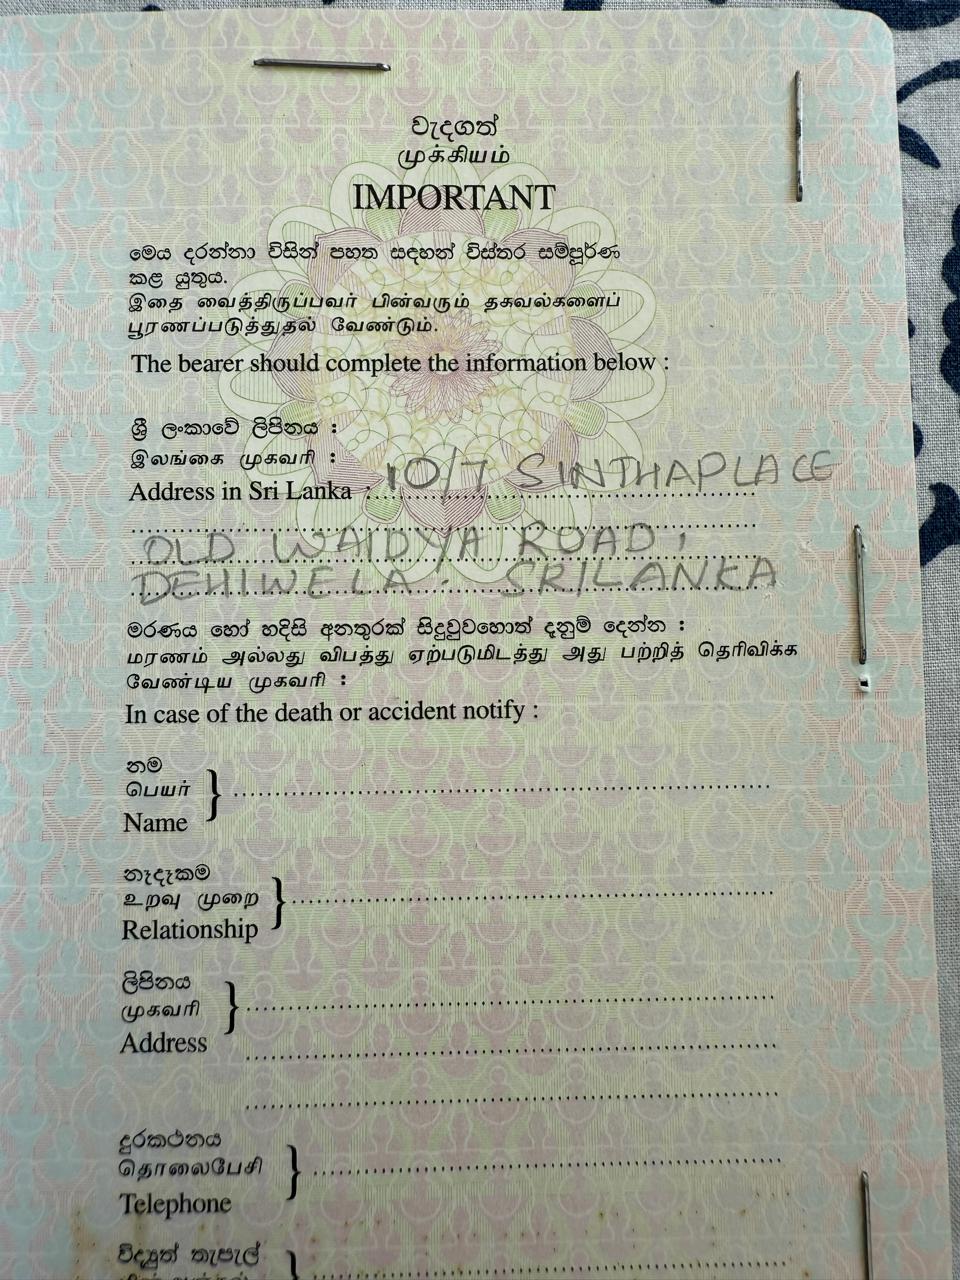 වැදගත්
முக்கியம்
IMPORTANT
මෙය දරන්නා විසින් පහත සඳහන් විස්තර සම්පූර්ණ
කළ යුතුය.
இதை வைத்திருப்பவர் பின்வரும் தகவல்களைப்
பூரணப்படுத்துதல் வேண்டும்.
The bearer should complete the information below :
ශ්‍රී ලංකාවේ ලිපිනය :
இலங்கை முகவரி :
Address in Sri Lanka : 10/7 SINTHAPLACE
OLD WAIDYA ROAD,
DEHIWELA. SRILANKA
මරණය හෝ හදිසි අනතුරක් සිදුවුවහොත් දැනුම් දෙන්න :
மரணம் அல்லது விபத்து ஏற்படுமிடத்து அது பற்றித் தெரிவிக்க
வேண்டிய முகவரி :
In case of the death or accident notify :
නම
பெயர்
Name
නෑදෑකම
உறவு முறை
Relationship
ලිපිනය
முகவரி
Address
දුරකථනය
தொலைபேசி
Telephone
විද්‍යුත් තැපැල්